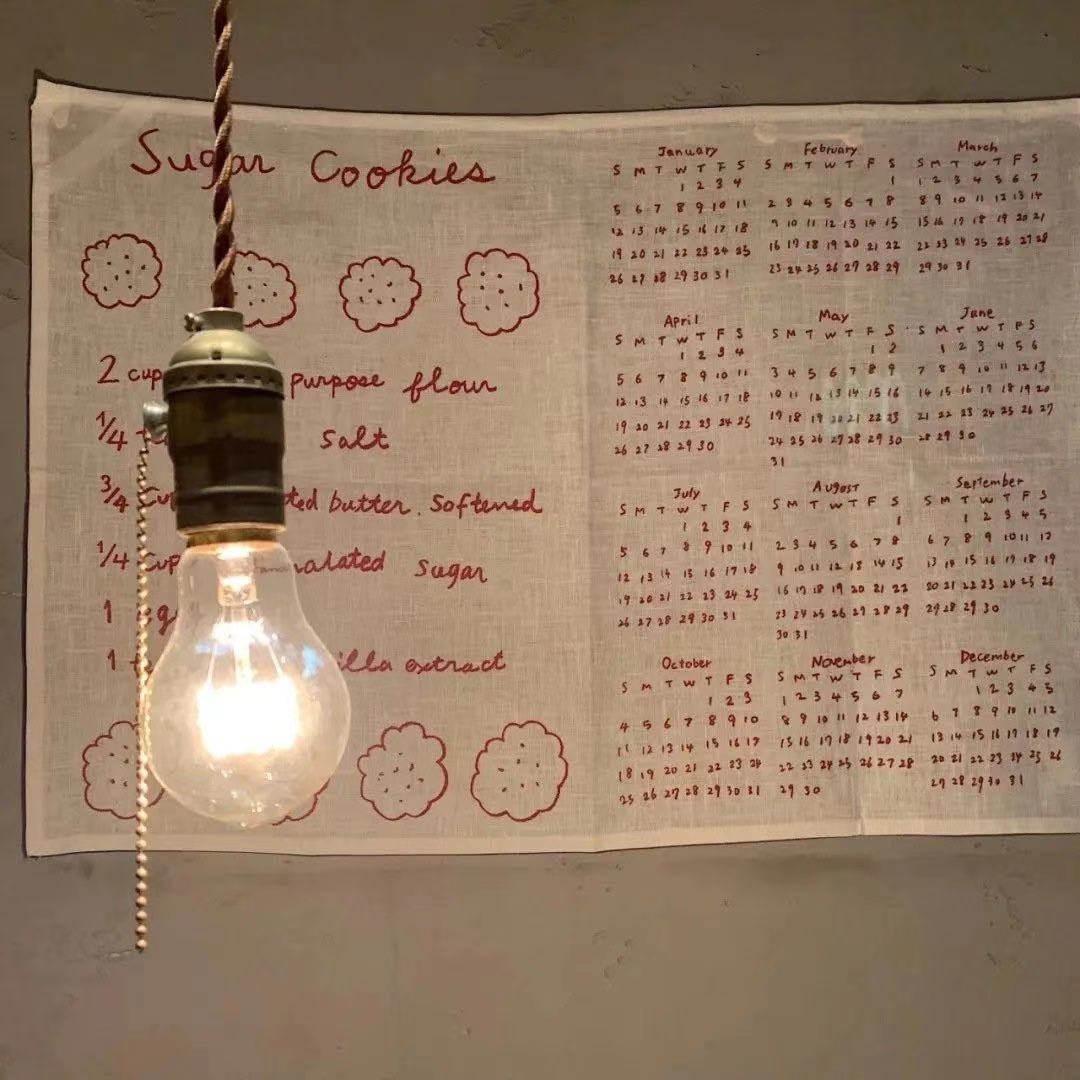 Sugar Cookies
2 cup purpose flour
1/4 salt
3/4 cup butter. softened
1/4 cup sugar
1
1 extract
January
S M T W T F S
1 2 3 4
5 6 7 8 9 10 11
12 13 14 15 16 17 18
19 20 21 22 23 24 25
26 27 28 29 30 31
February
S M T W T F S
1
2 3 4 5 6 7 8
9 10 11 12 13 14 15
16 17 18 19 20 21 22
23 24 25 26 27 28 29
March
S M T W T F S
1 2 3 4 5 6 7
8 9 10 11 12 13 14
15 16 17 18 19 20 21
22 23 24 25 26 27 28
29 30 31
April
S M T W T F S
1 2 3 4
5 6 7 8 9 10 11
12 13 14 15 16 17 18
19 20 21 22 23 24 25
26 27 28 29 30
May
S M T W T F S
1 2
3 4 5 6 7 8 9
10 11 12 13 14 15 16
17 18 19 20 21 22 23
24 25 26 27 28 29 30
31
June
S M T W T F S
1 2 3 4 5 6
7 8 9 10 11 12 13
14 15 16 17 18 19 20
21 22 23 24 25 26 27
28 29 30
July
S M T W T F S
1 2 3 4
5 6 7 8 9 10 11
12 13 14 15 16 17 18
19 20 21 22 23 24 25
26 27 28 29 30 31
August
S M T W T F S
1
2 3 4 5 6 7 8
9 10 11 12 13 14 15
16 17 18 19 20 21 22
23 24 25 26 27 28 29
30 31
September
S M T W T F S
1 2 3 4 5
6 7 8 9 10 11 12
13 14 15 16 17 18 19
20 21 22 23 24 25 26
27 28 29 30
October
S M T W T F S
1 2 3
4 5 6 7 8 9 10
11 12 13 14 15 16 17
18 19 20 21 22 23 24
25 26 27 28 29 30 31
November
S M T W T F S
1 2 3 4 5 6 7
8 9 10 11 12 13 14
15 16 17 18 19 20 21
22 23 24 25 26 27 28
29 30
December
S M T W T F S
1 2 3 4 5
6 7 8 9 10 11 12
13 14 15 16 17 18 19
20 21 22 23 24 25 26
27 28 29 30 31